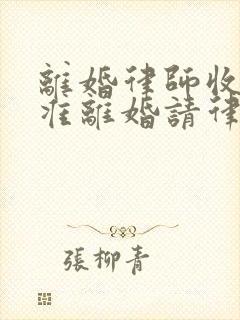 離婚律師收
准離婚請律
張柳青